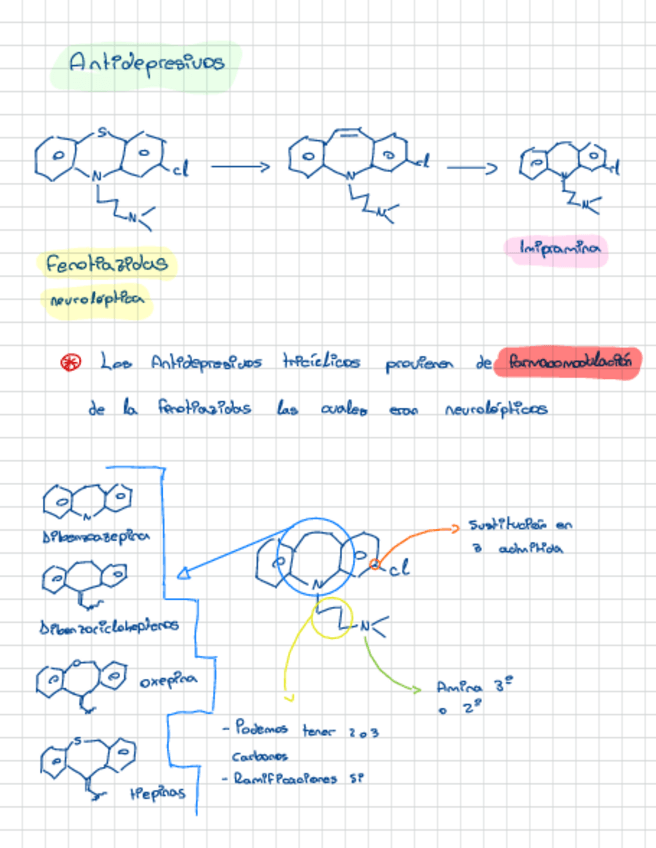 Antidepresivos
S
Cl
N
N
Cl
N
N
Cl
N
N
Imipramina
Fenotiazidas
neuroléptica
Los Antidepresivos tricíclicos provienen de farmacomodulación
de la fenotiazidas las cuales eran neurolépticos
N
Dibenzoazepina
Sustitución en
3 admitida
Cl
N
N
Dibenzocicloheptenos
O
oxepina
Amina 3ª
o 2ª
- Podemos tener 2 o 3
Carbonos
- Ramificaciones Si
S
tiepinas